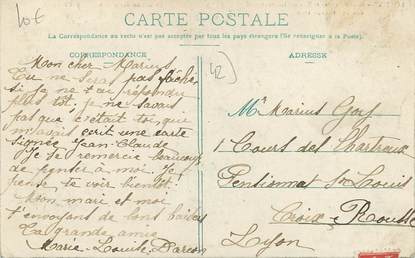 Lot
CARTE POSTALE
La Correspondance au recto n'est pas acceptée par tous les pays étrangers (Se renseigner à la Poste).
CORRESPONDANCE
ADRESSE
42
Mon cher Marius
Tu ne seras pas fâché
si je ne t'ai répondu
plus tôt, je ne savais
pas que c'était toi, qui
m'avais écrit une carte
signée Jean-Claude
je te remercie beaucoup
de penser à moi. Je
pense te voir bientôt.
Mon mari et moi
t'envoyons de bons baisers
Ta grande amie
Marie-Louise
Mr Marius Goy
1 Cours des Chartreux
Pensionnat St Louis
Croix-Rousse
Lyon